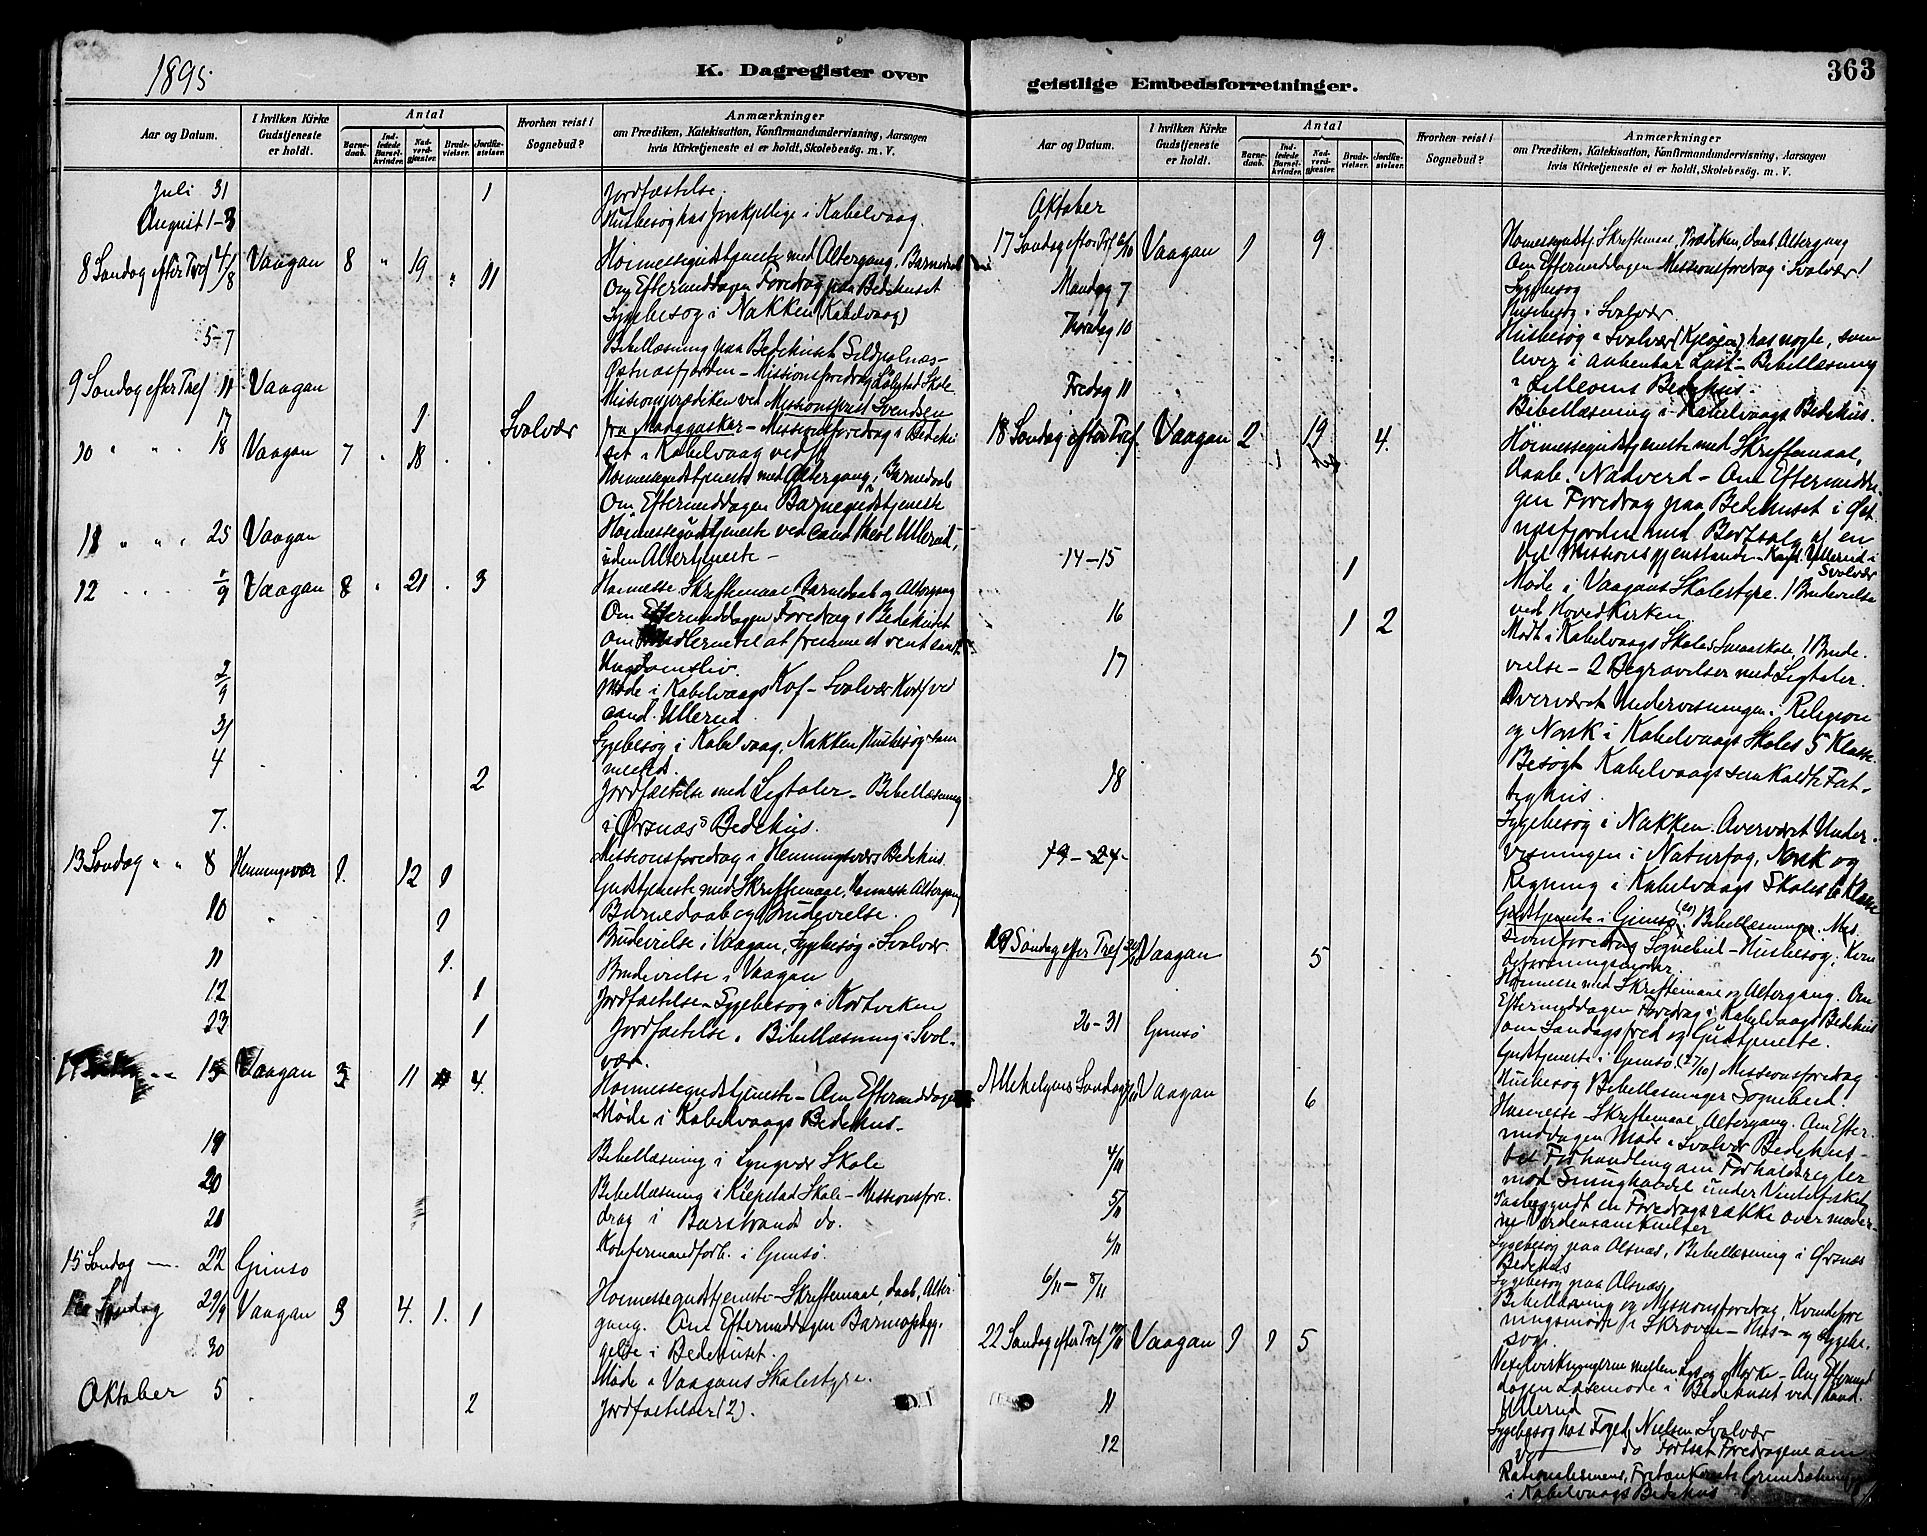 1895
K. Dagregister over
geistlige Embedsforretninger.
363
Aar og Datum.
I hvilken Kirke Gudstjeneste er holdt.
Antal
Barnedaab.
Indledede Barselkvinder.
Nadverdgjæster.
Brudevielser.
Jordfæstelser.
Hvorhen reist i Sognebud?
Anmærkninger
om Prædiken, Katekisation, Konfirmandundervisning, Aarsagen
hvis Kirketjeneste ei er holdt, Skolebesøg. m. V.
Juli 31 1 Jordfæstelse.
August 1-3 Husbesøg hos forskjellige i Kabelvaag.
8 Søndag efter Tref 4/8 Vaagan 8 " 19 " 11 Høimessegudstjeneste med Altergang, Barnedaab
Om Eftermiddagen Foredrag paa Bedehuset
Sygebesøg i Nakken (Kabelvaag)
5-7 Bibellæsning paa Bedehuset Sildpolnæs-
Østnæsfjorden - Missionsforedrag Skole
9 Søndag efter Tref 11 Vaagan Missionsprædiken ved Missionsprest Svendsen
17 1 Svolvær fra Madagaskar - Missionsforedrag i Bedehu
10 " " " 18 Vaagan 7 . 18 . . set i Kabelvaag ved
Høimessegudstjeneste med Altergang, Barnedaab
Om Eftermiddagen Barnegudstjeneste
11 " " " 25 Vaagan Høimessegudstjeneste ved cand. theol Ullerud,
uden Altertjeneste -
12 . . . . 1/9 Vaagan 8 . 21 . 3 Høimesse Skriftemaal Barnedaab og Altergang
Om Eftermiddagen Foredrag i Bedehuset
om Midlerne til at fremme et rent sandt
Ungdomsliv.
2/9 Møde i Kabelvaags Kof - Svolvær Kof ved
cand. Ullerud.
3/ Sygebesøg i Kabelvaag, Nakken, Husbesøg sam
4 . 2 mested.
Jordfæstelse med Ligtaler - Bibellæsning
7. i Ørsnæs Bedehus.
Missionsforedrag i Henningsvær Bedehus.
13 Søndag " " 8 Henningsvær 1. 12 1 Gudstjeneste med Skriftemaal, Altergang
10 " 1 Barnedaab og Brudevielse.
Brudevielse i Vaagan, Sygebesøg i Svolvær
11 1. Brudevielse i Vaagan
12 1 Jordfæstelse Sygebesøg i Kortviken
23 1 Jordfæstelse. Bibellæsning i Svol-
vær.
15 Vaagan 3 11 4. Høimessegudstjeneste - Om Eftermiddagen
Møde i Kabelvaags Bedehus.
19 Bibellæsning i Lyngvær Skole
20 Bibellæsning i Klepstad Skole - Missionsfore-
21 drag i Barstrands do.
Konfermandforb. i Gimsø.
15 Søndag - - 22 Gimsø
Søndag 29/9 Vaagan 3 4. 1. 1 Høimessegudstjeneste - Skriftemaal, daab, Alter-
gang. Om Eftermiddagen Barneopbyg-
30 gelse i Bedehuset.
Møde i Vaagans Skolestyre.
Oktober 5 . 2 Jordfæstelser (2).
Aar og Datum.
I hvilken Kirke Gudstjeneste er holdt.
Antal
Barnedaab.
Indledede Barselkvinder.
Nadverdgjæster.
Brudevielser.
Jordfæstelser.
Hvorhen reist i Sognebud?
Anmærkninger
om Prædiken, Katekisation, Konfirmandundervisning, Aarsagen
hvis Kirketjeneste ei er holdt, Skolebesøg. m. V.
Oktober
17 Søndag efter Tref 6/10 Vaagan 1 9 Høimessegudstj. Skriftemaal, Prædiken, Daab, Altergang
Om Eftermiddagen Missionsforedrag i Svolvær!
Mandag 7 Sygebesøg
Husbesøg i Svolvær
Thorsdag 10 Husbesøg i Svolvær (Kjeøen) hos nogle, som
lever i aabenbar Last - Bibellæsning
Fredag 11 i Lillevens Bedehus.
Bibellæsning i Kabelvaags Bedehus.
18 Søndag efter Tref. Vaagan 2 . 19 4. Høimessegudstjeneste med Skriftemaal,
daab. Nadverd - Om Eftermidda-
gen Foredrag paa Bedehuset i Øst-
næsfjorden med Bortsalg af en
Del Missionsgjenstande - Ullerud i
14-15 1 Svolvær
Møde i Vaagans Skolestyre. 1 Brudevielse
16 1 2 ved Hovedkirken.
Mødt i Kabelvaags Skoles Smaaskole. 1 Brude-
17 vielse - 2 Begravelser med Ligtaler.
Overværet Undervisningen i Religion
og Norsk i Kabelvaags Skoles 5 Klasse.
18 Besøgt Kabelvaags saakaldte Fat-
tighus.
Sygebesøg i Nakken. Overværet Under-
19-24- visningen i Naturfag, Norsk og
Regning i Kabelvaags Skoles 6 Klasse
Gudstjeneste i Gimsø, Bibellæsninger. Mis-
Søndag efter Tref Vaagan 5 sionsforedrag Sognebud - Husbesøg, Kvin
deforeningsmøder.
Høimesse med Skriftemaal og Altergang. Om
Eftermiddagen Foredrag i Kabelvaags Bedehus
26-31 Gimsø om Søndagsfred og Gudstjeneste.
Gudstjeneste i Gimsø (27/10) Missionsforedrag
Allehelgens Søndag Vaagan 6 Husbesøg Bibellæsninger Sognebud.
Høimesse Skriftemaal, Altergang. Om Efter-
middagen Møde i Svolvær Bedehus -
4/11 Forhandling om Forholdsregler
mod Smughandel under Vinterfisket
5/11 Paabegyndt en Foredragsrække over moder-
ne Verdensanskuelser
6/11 Sygebesøg paa Olsnæs, Bibellæsning i Ørsnæs
Bedehus
6/11 - 8/11 Sygebesøg paa Olsnæs
Bibellæsning og Missionsforedrag, Kvindefore
ningsmøde i Skroven - Hus- og Sygebe-
22 Søndag efter Tref 10/11 Vaagan 1 1 5 søg.
Vexelvirkningerne mellem Lys og Mørke - Om Eftermid
dagen Læsemøde i Bedehuset ved Cand.
11 Ullerud
Sygebesøg hos Foged Nielsen Svolvær
12 do Fortsat Foredragene om
Rationalismens, Fritænkeriets Grundsætninger
i Kabelvaags Bedehus